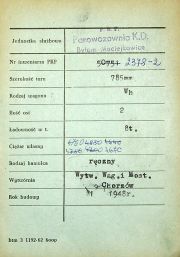 P.K.P.
Jednostka służbowa Parowozownia K.D.
Bytom Maciejkowice
Nr inwentarza PKP 50751 2378-2
Szerokość toru 785mm
Rodzaj wagonu Wh
Ilość osi 2
Ładowność w t. 8t.
Ciężar własny
Rodzaj hamulca ręczny
Wytwórnia Wytw. Wag. i Most.
Chorzów
Rok budowy 1948r.